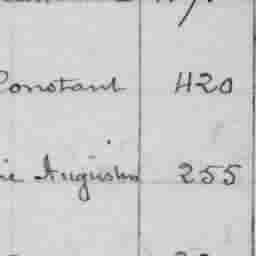 Constant 420
ie Augustin 255